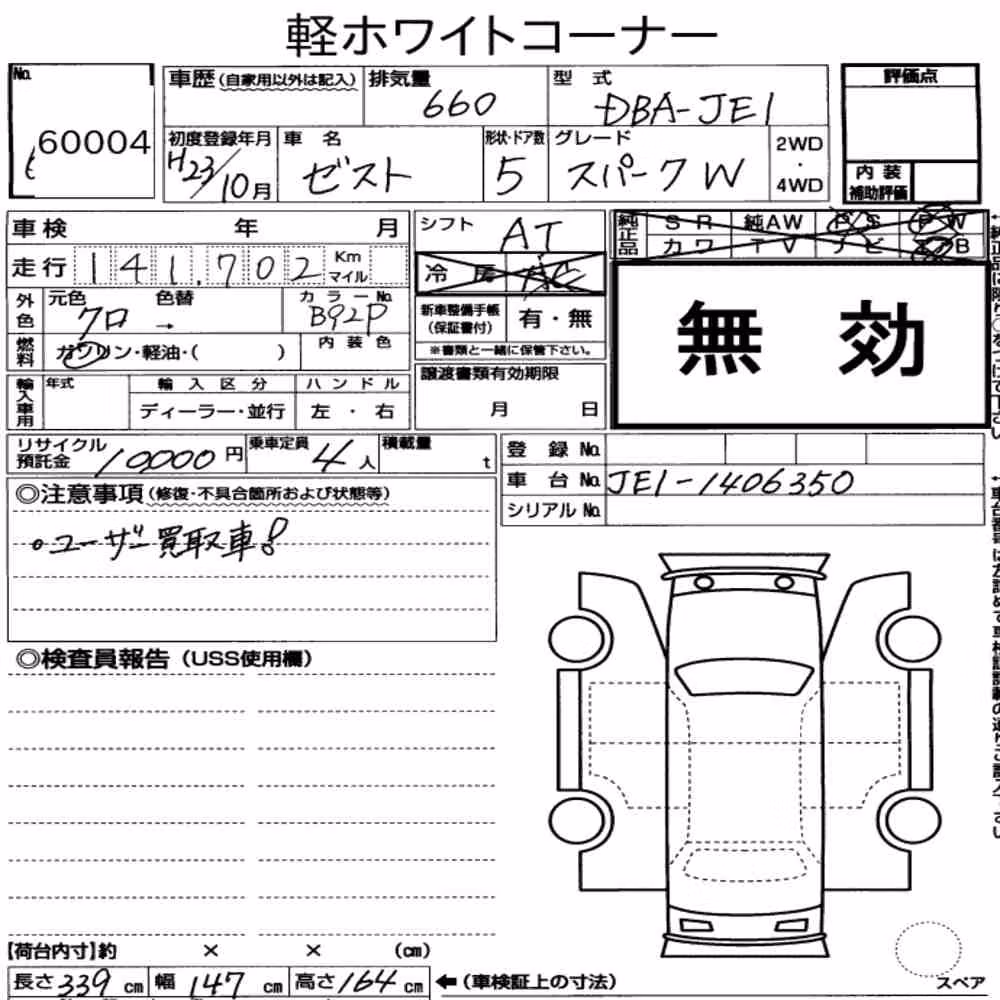 軽ホワイトコーナー
No. 60004
車歴(自家用以外は記入)
排気量 660
型式 DBA-JE1
評価点
初度登録年月 H23/10月
車名 ゼスト
形状・ドア数 5
グレード スパークW
2WD・4WD
内装補助評価
車検 年 月
シフト AT
純正品 SR 純AW P/S PW
カワ TV ナビ
走行 141,702 Km マイル
冷房
無効
外色 元色 クロ 色替 → カラーNo. B92P
新車整備手帳(保証書付) 有・無
※書類と一緒に保管下さい。
燃料 ガソリン・軽油・( ) 内装色
譲渡書類有効期限 月 日
輸入車用 年式 輸入区分 ハンドル
ディーラー・並行 左・右
リサイクル預託金 10000円 乗車定員 4人 積載量 t
登録No.
車台No. JE1-1406350
シリアルNo.
◎注意事項(修復・不具合箇所および状態等)
・ユーザー買取車!
◎検査員報告(USS使用欄)
【荷台内寸】約 × × (cm)
長さ339cm 幅147cm 高さ164cm ←(車検証上の寸法)
スペア